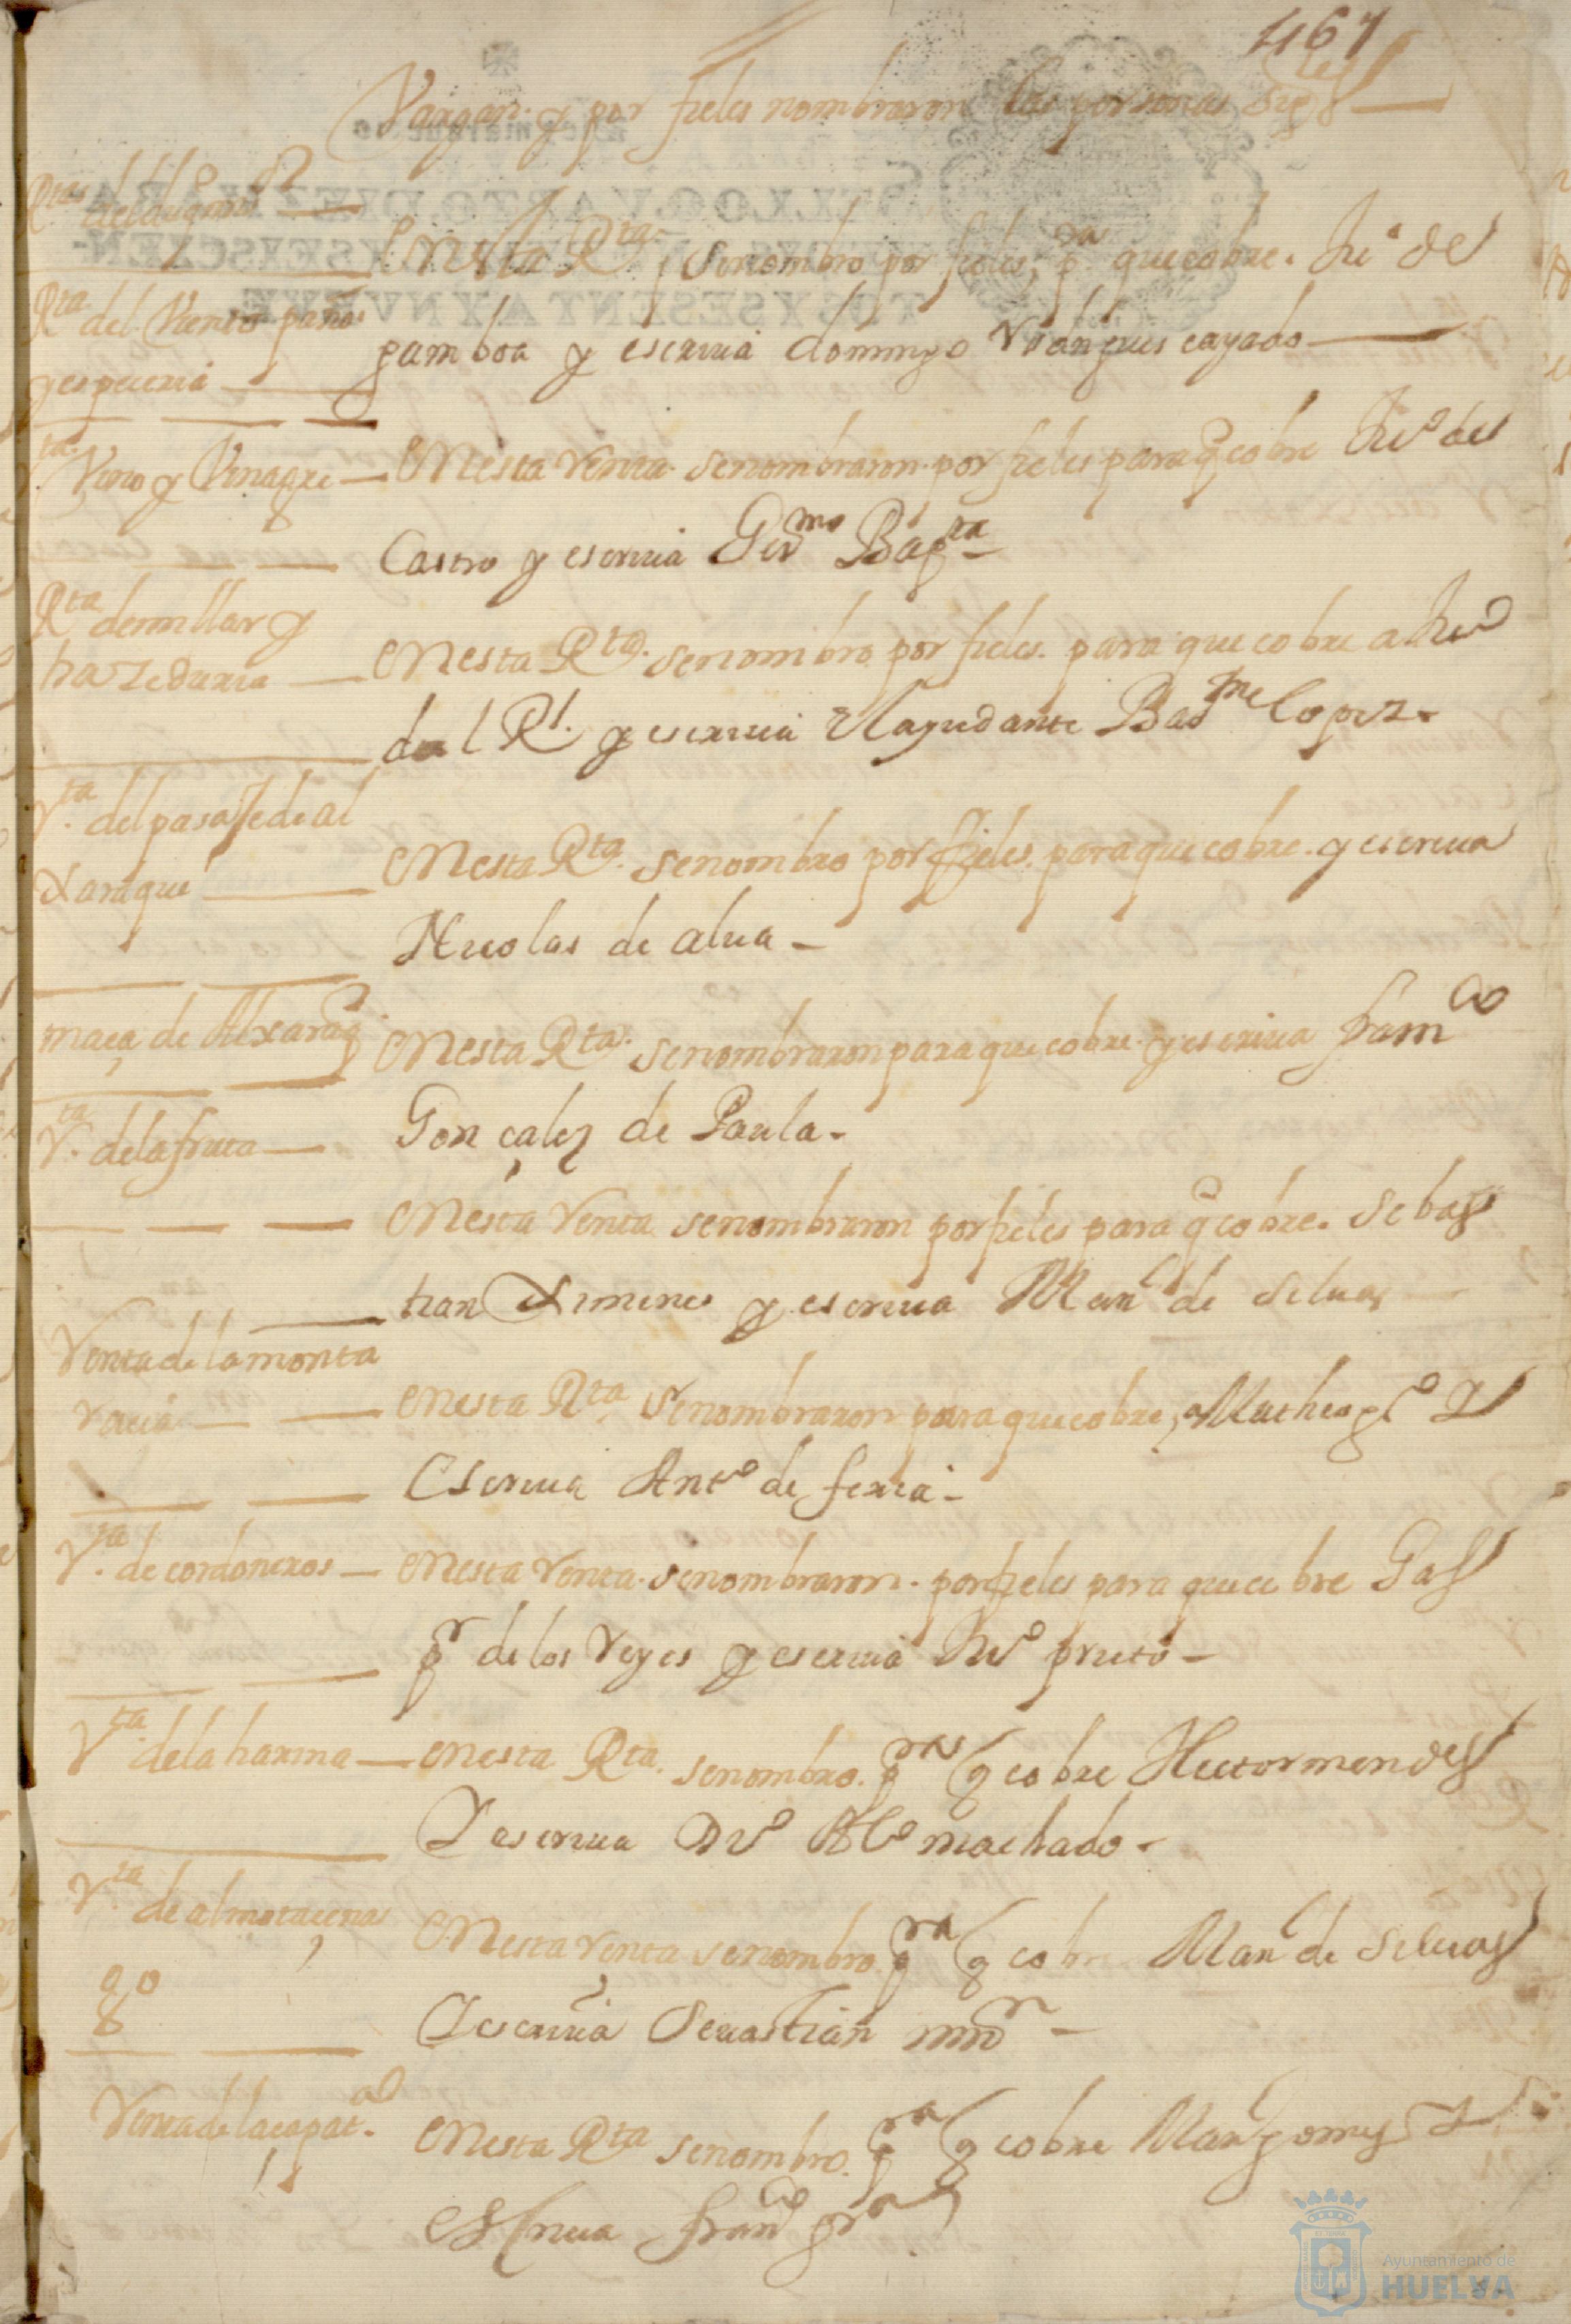 467
Vargas. y por fieles nombraron las personas sigtes
Rtas del duq nro sr
Rta del Viento paños
y espeçeria
En esta Rta. se nombro por fieles, pa que cobre. Juo de
gamboa y escriua domingo Rodrigues cayado
Rta. Vino y Vinagre
En esta renta se nombraron por fieles para q cobre Juo de
Castro y escriua Germo Bapta
Rta de millar y
hazeduria
En esta Rta. se nombro por fieles. para que cobre a Juo
del Rl. y escriua el ayudante Barme lopez.
rta. del pasaje de al
xaraque
En esta Rta. se nombro por fieles. para que cobre. y escriua
Nicolas de alua
maça de Alxaraq
En esta Rta. se nombraron para que cobre. y escriua franco
Gonçales de Paula.
rta. de la fruta
En esta renta se nombraron por fieles para q cobre. Sebas
tian Ximenes y escriua Manl de Seluas
Renta de la monta
racia
En esta Rta se nombraron para que cobre, Matheo po Y
Escriua Anto de feria
rta. de cordoneros
En esta renta. se nombraron. por fieles para que cobre Gas
pr de los reyes y escriua Juo prieto
rta. de la harina
En esta Rta. se nombro. pra q cobre Hector mendes
Y escriua Do Alo machado.
rta. de almotaçena
go
En esta renta se nombro pra q cobre Manl de Seluas
Y escriua Seuastian mnr
Renta de la çapatal.
En esta Rta se nombro. pra q cobre Manl gomes Y
Escriua franco gra
Ayuntamiento de
HUELVA